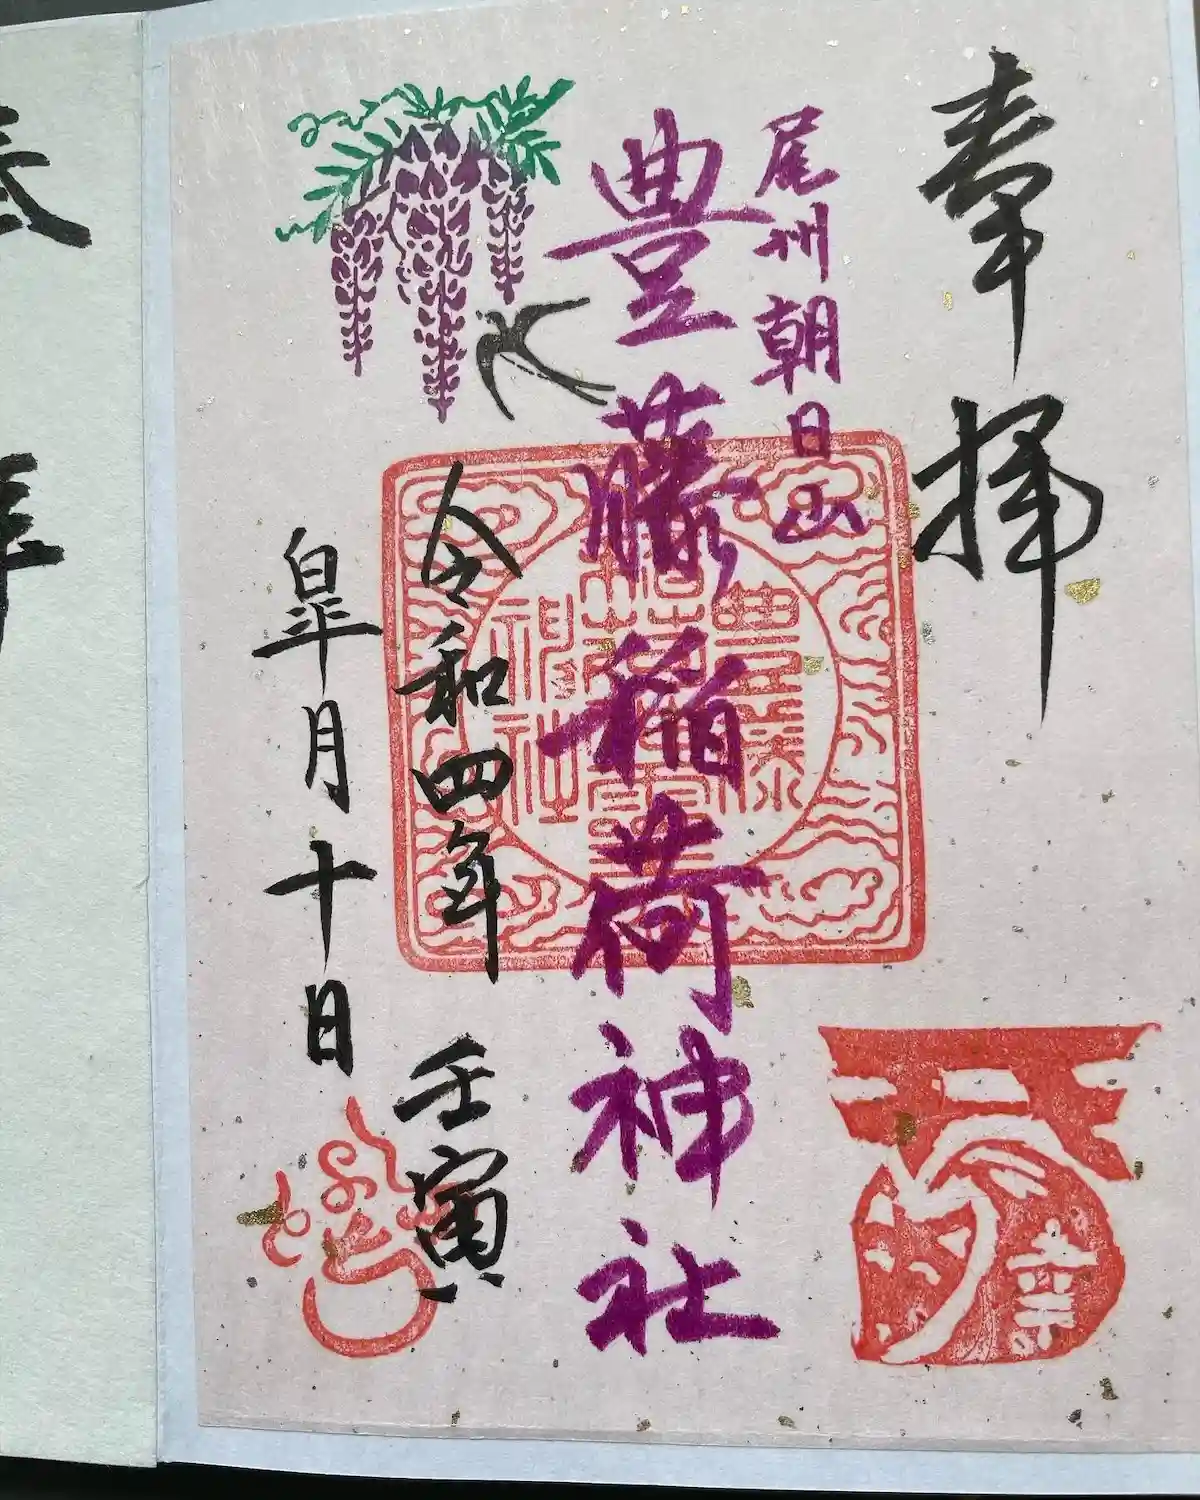 奉拝
尾州朝日山
豊藤稲荷神社
令和四年 壬寅
皐月十日
幸